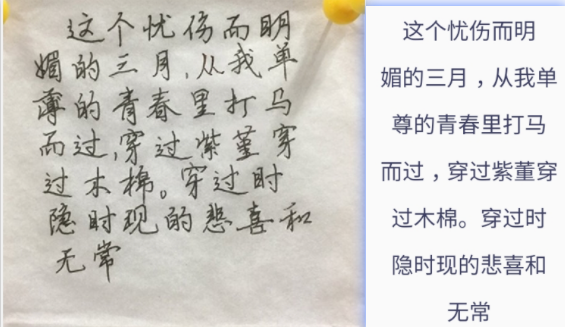 这个忧伤而明
媚的三月,从我单
薄的青春里打马
而过,穿过紫堇穿
过木棉。穿过时
隐时现的悲喜和
无常
这个忧伤而明
媚的三月，从我单
尊的青春里打马
而过，穿过紫堇穿
过木棉。穿过时
隐时现的悲喜和
无常